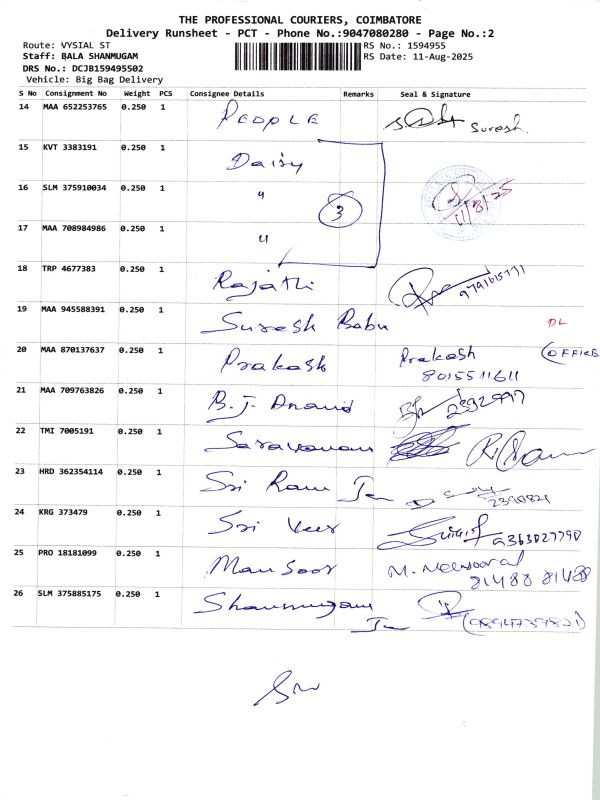 THE PROFESSIONAL COURIERS, COIMBATORE
Delivery Runsheet - PCT - Phone No.:9047080280 - Page No.:2
Route: VYSIAL ST RS No.: 1594955
Staff: BALA SHANMUGAM RS Date: 11-Aug-2025
DRS No.: DCJB159495502
Vehicle: Big Bag Delivery
S No Consignment No Weight PCS Consignee Details Remarks Seal & Signature
14 MAA 652253765 0.250 1 PEOPLE Suresh.
15 KVT 3383191 0.250 1 Daisy
16 SLM 375910034 0.250 1 " 3 11/8/25
17 MAA 708984986 0.250 1 "
18 TRP 4677383 0.250 1 Rajathi 9791615771
19 MAA 945588391 0.250 1 Suresh Babu DL
20 MAA 870137637 0.250 1 Prakash Prakash (OFFICE)
8015511611
21 MAA 709763826 0.250 1 B.J. Anand 2392997
22 TMI 7005191 0.250 1 Saravanan
23 HRD 362354114 0.250 1 Sri Ram 2390821
24 KRG 373479 0.250 1 Sri Veer 9363027790
25 PRO 18181099 0.250 1 Mansoor M.
81488 81488
26 SLM 375885175 0.250 1 Shanmugam